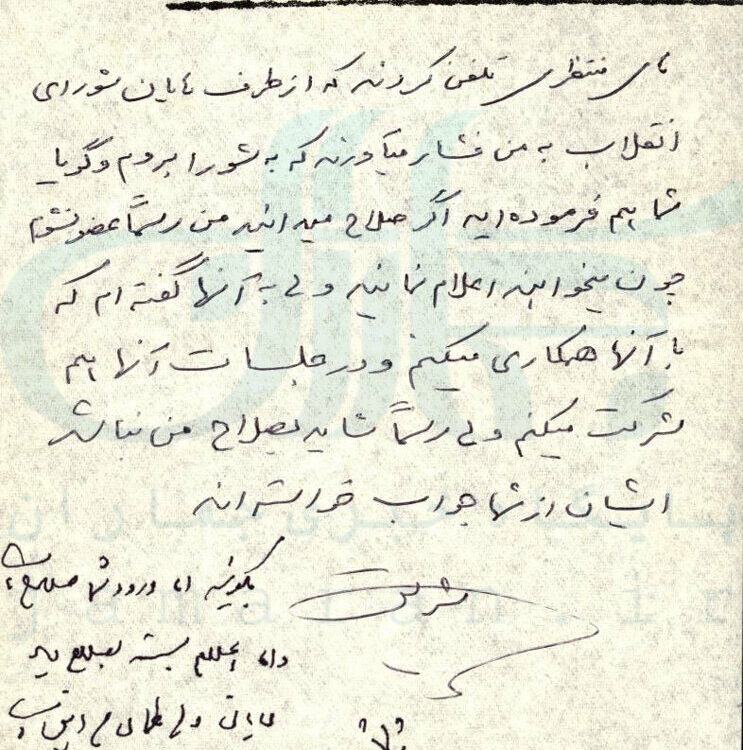 آقای منتظری تلفن کردند که از طرف آقایان شورای
انقلاب به من فشار میآورند که به شورا بروم و گویا
شما هم فرموده‌اید اگر صلاح میدانید من رسماً عضو نشوم
چون میخواهند اعلام نمایند ولی به آنها گفته‌ام که
با آنها همکاری میکنم و در جلسات آنها هم
شرکت میکنم ولی رسماً شاید بصلاح من نباشد
ایشان از شما جواب خواسته‌اند
بگوئید ورود شما صلاح است
و اعلام بسته بصلاحدید
آقایان
پایگاه خبری جماران
jamaran.ir